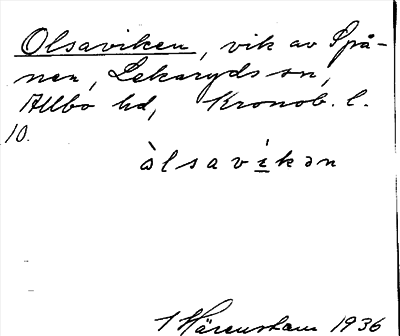 Olsaviken, vik av Spå-
nen, Lekaryds sn,
Allbo hd, Kronob. l.
10.
òlsavi̱kən
Härenstam 1936